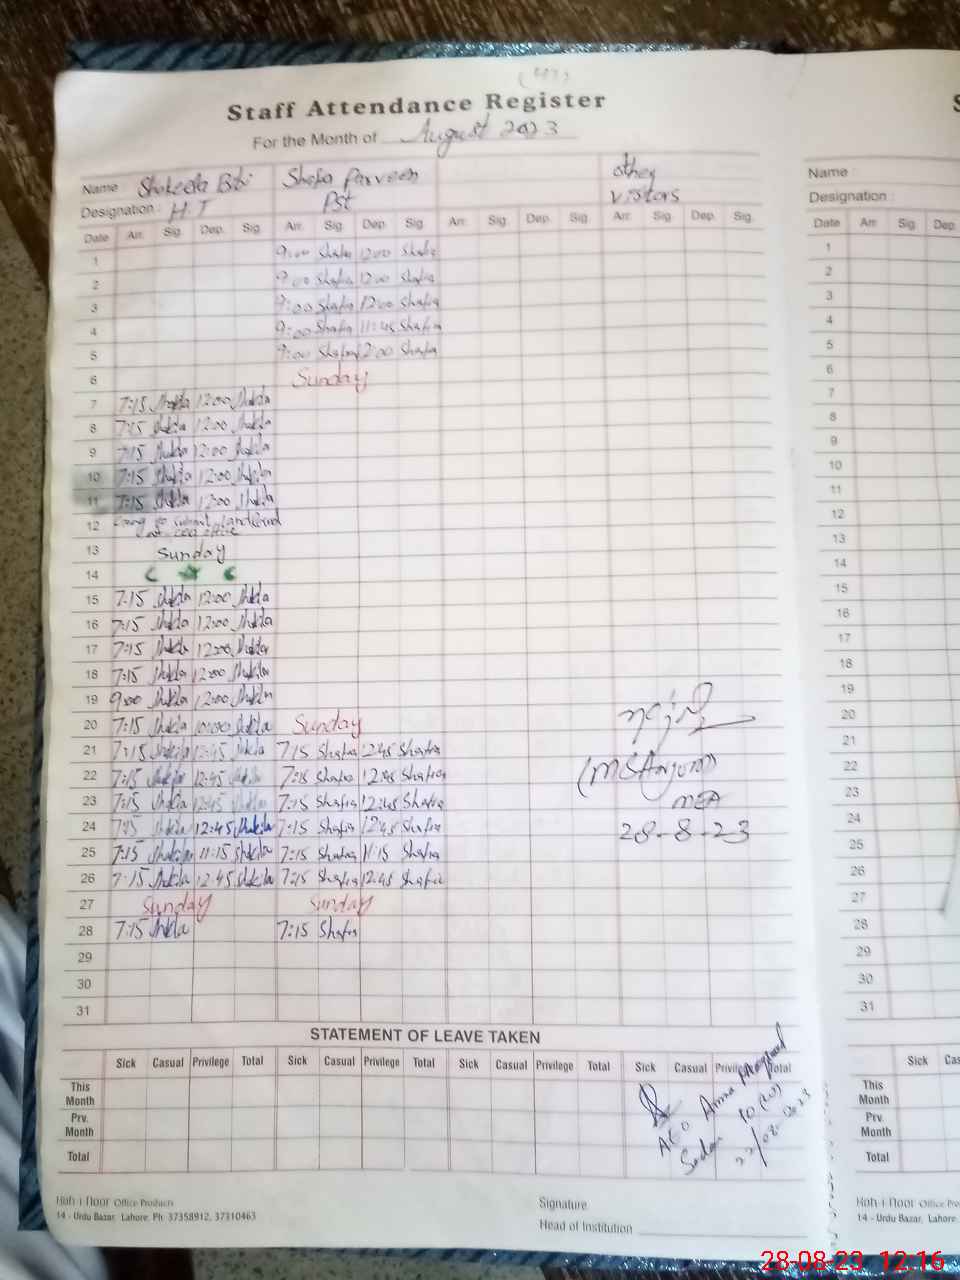 Staff Attendance Register
For the Month of August 2023
Name Shakeela Bibi Shafia Parveen other
Designation : H.T Pst visitors
Date Arr. Sig. Dep. Sig. Arr. Sig. Dep. Sig. Arr. Sig. Dep. Sig. Arr. Sig. Dep. Sig.
1 9:00 Shafia 12:00 Shafia
2 9:00 Shafia 12:00 Shafia
3 9:00 Shafia 12:00 Shafia
4 9:00 Shafia 11:45 Shafia
5 9:00 Shafia 12:00 Shafia
6 Sunday
7 7:15 Shakila 12:00 Shakila
8 7:15 Shakila 12:00 Shakila
9 7:15 Shakila 12:00 Shakila
10 7:15 Shakila 12:00 Shakila
11 7:15 Shakila 12:00 Shakila
12 going to submit
office
13 Sunday
14
15 7:15 Shakila 12:00 Shakila
16 7:15 Shakila 12:00 Shakila
17 7:15 Shakila 12:00 Shakila
18 7:15 Shakila 12:00 Shakila
19 9:00 Shakila 12:00 Shakila
20 7:15 Shakila 10:00 Shakila Sunday
21 7:15 Shakila 12:45 Shakila 7:15 Shafia 12:45 Shafia
22 7:15 Shakila 12:45 Shakila 7:15 Shafia 12:45 Shafia
23 7:15 Shakila 12:45 Shakila 7:15 Shafia 12:45 Shafia
24 7:15 Shakila 12:45 Shakila 7:15 Shafia 12:45 Shafia
25 7:15 Shakila 11:15 Shakila 7:15 Shafia 11:15 Shafia
26 7:15 Shakila 12:45 Shakila 7:15 Shafia 12:45 Shafia
27 Sunday Sunday
28 7:15 Shakila 7:15 Shafia
29
30
31
(M S Anjum)
MEA
28-8-23
STATEMENT OF LEAVE TAKEN
Sick Casual Privilege Total Sick Casual Privilege Total Sick Casual Privilege Total Sick Casual Privilege Total
This Month
Prv. Month
Total
AEO Amna
22/08-2023
Koh-i-Noor Office Products
14 - Urdu Bazar, Lahore. Ph: 37358912, 37310463
Signature
Head of Institution
Name :
Designation :
Date Arr. Sig. Dep.
1
2
3
4
5
6
7
8
9
10
11
12
13
14
15
16
17
18
19
20
21
22
23
24
25
26
27
28
29
30
31
Sick Ca
This Month
Prv. Month
Total
Koh-i-Noor Office Pro
14 - Urdu Bazar, Lahore.
28-08-23 12:16